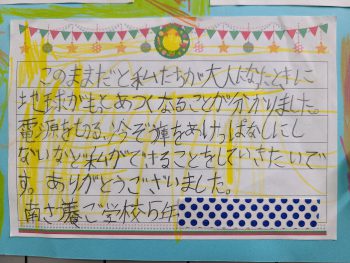 このままだと私たちが大人なたときに
地球がもとあつくなることが分かりました。
電源をもちる、冷ぞう庫をあけっぱなしにし
ないなど私ができることをしていきたいで
す。ありがとうございました。
南さ養ご学校5年